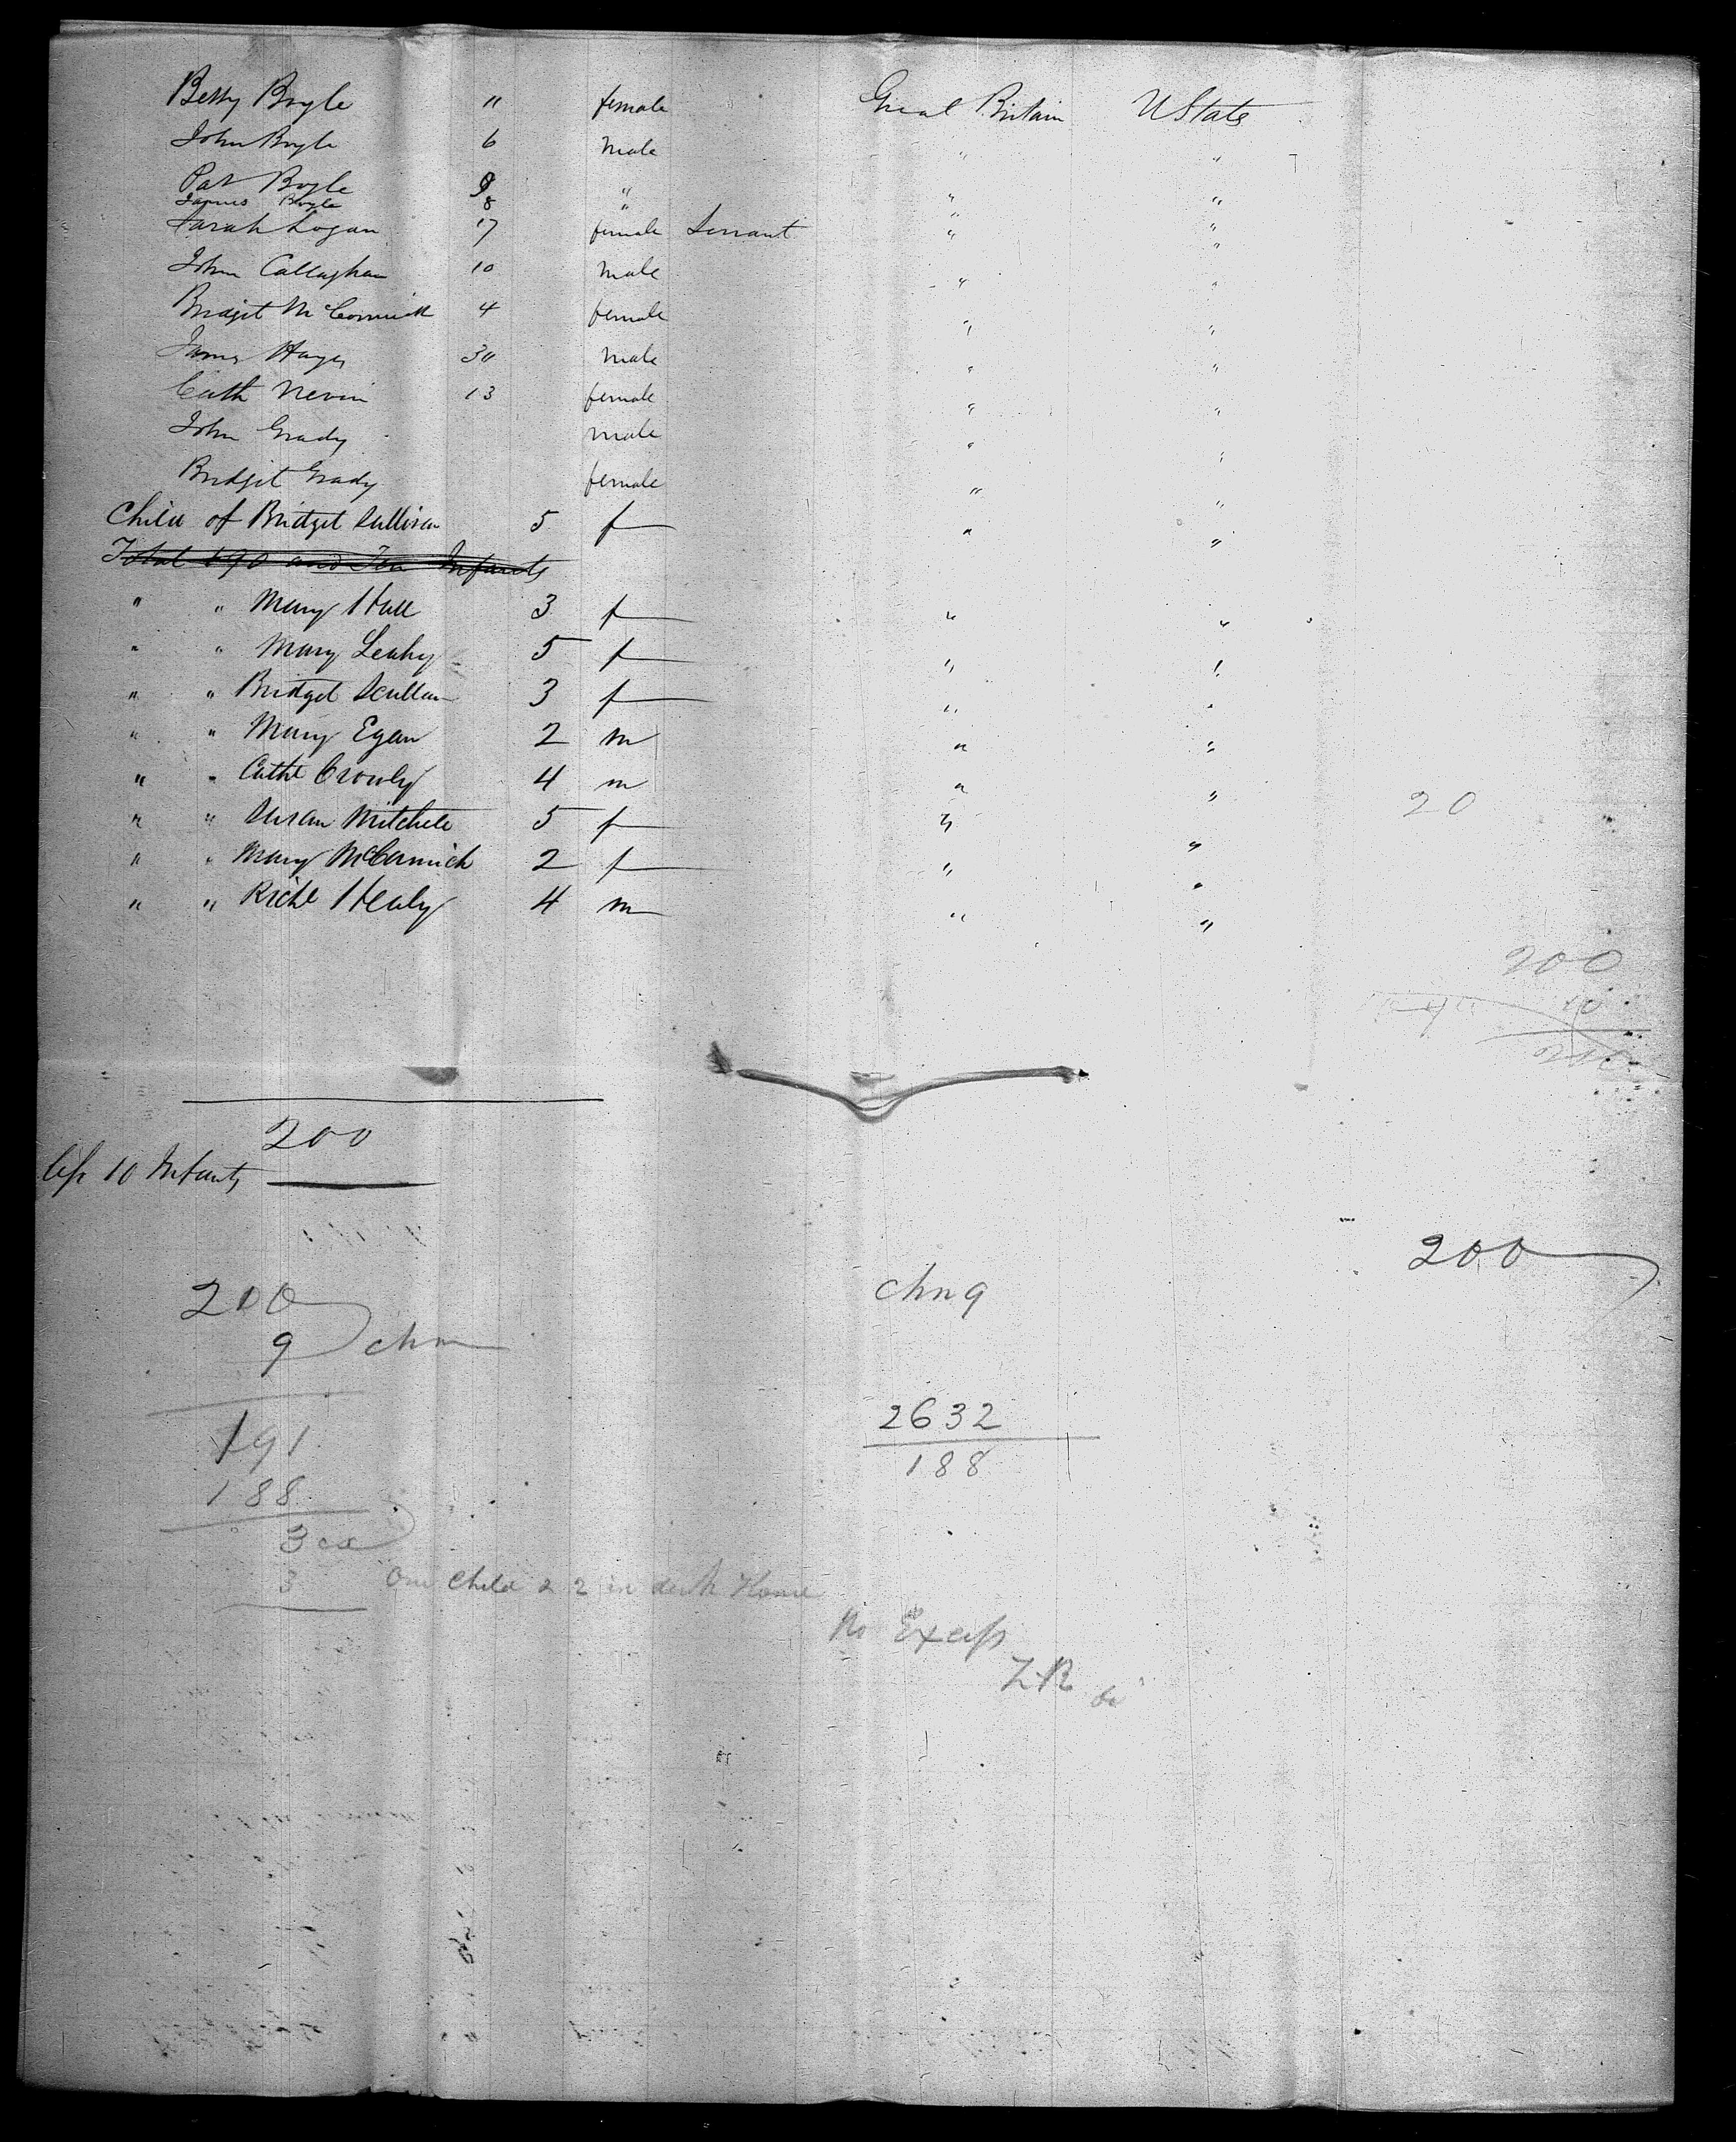 Betty Boyle " female Great Britain U State
John Boyle 6 male " "
Pat Boyle 9 " " "
James Boyle 8 " "
Sarah Logan 17 female Servant " "
John Callaghan 10 male " "
Bridgit McCormick 4 female " "
James Hayes 30 male " "
Cath Nevin 13 female " "
John Grady male " "
Bridgit Grady female " "
Child of Bridget Sullivan 5 f " "
Total 190 and Ten Infants
" " Mary Hall 3 f " "
" " Mary Leahy 5 f " "
" " Bridget Scullan 3 f " "
" " Mary Egan 2 m " "
" " Cathe Crowly 4 m " "
" " Susan Mitchele 5 f " "
20
" " Mary McCormick 2 f " "
" " Richd Healy 4 m " "
200
10
200
10 Infants
200
200
9 chn
chn 9
191
188
2632
188
3 ex
3 One child & 2 in deck House
No Excess